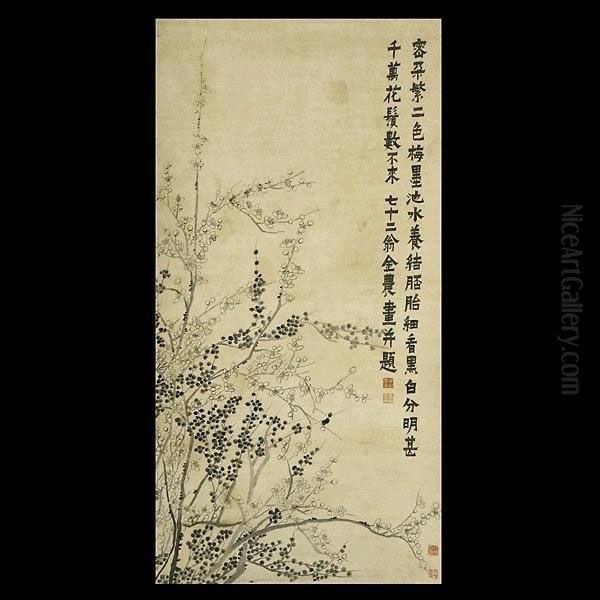 密朵繁二色梅墨池水養結胚胎細看黑白分明甚
千萬花鬚數不來 七十二翁金農畫并題
NiceArtGallery.com